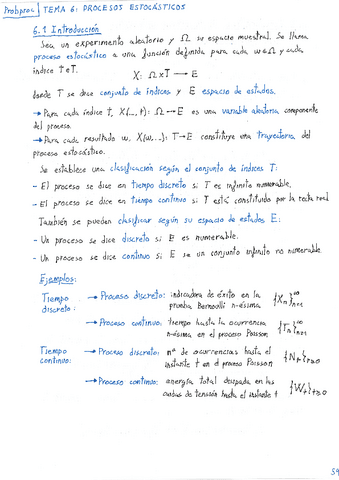 Probproc TEMA 6: PROCESOS ESTOCÁSTICOS
6.1 Introducción
Sea un experimento aleatorio y Ω su espacio muestral. Se llama
proceso estocástico a una función definida para cada ω∈Ω y cada
índice t∈T.
X: Ω×T → E
donde T se dice conjunto de índices y E espacio de estados.
→ Para cada índice t, X(., t): Ω → E es una variable aleatoria componente
del proceso.
→ Para cada resultado ω, X(ω, .): T → E constituye una trayectoria del
proceso estocástico.
Se establece una clasificación según el conjunto de índices T:
- El proceso se dice en tiempo discreto si T es infinito numerable.
- El proceso se dice en tiempo continuo si T está constituido por la recta real
También se pueden clasificar según su espacio de estados E:
- Un proceso se dice discreto si E es numerable.
- Un proceso se dice continuo si E es un conjunto infinito no numerable.
Ejemplos:
Tiempo discreto: → Proceso discreto: indicadora de éxito en la
prueba Bernoulli n-ésima {Xₙ}ₙ₌₁^∞
→ Proceso continuo: tiempo hasta la ocurrencia
n-ésima en el proceso Poisson {Tₙ}ₙ₌₁^∞
Tiempo continuo: → Proceso discreto: nº de ocurrencias hasta el
instante t en el proceso Poisson {Nₜ}ₜ≥₀
→ Proceso continuo: energía total disipada en las
ondas de tensión hasta el instante t {Wₜ}ₜ≥₀